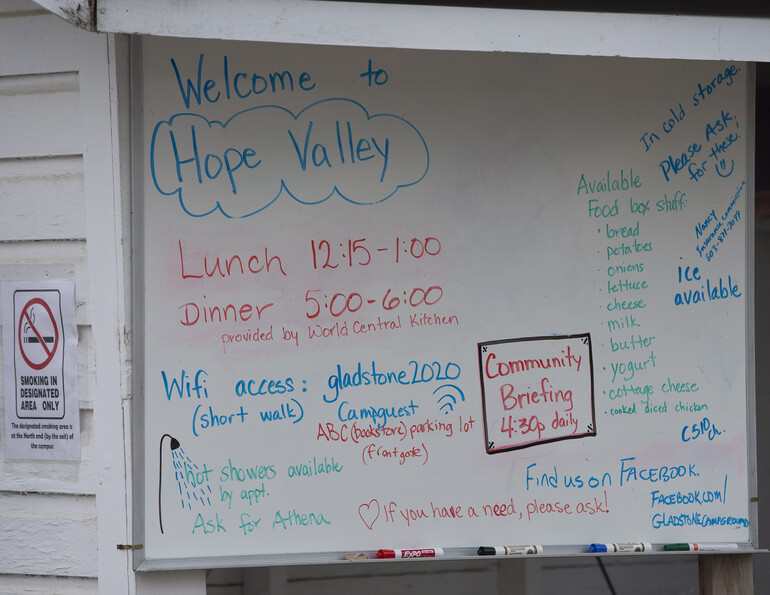 Welcome to
Hope Valley
Lunch 12:15-1:00
Dinner 5:00-6:00
provided by World Central Kitchen
Wifi access: gladstone2020
(short walk) Campguest
ABC (bookstore) parking lot
(front gate)
hot showers available
by appt.
Ask for Athena
♡ If you have a need, please ask!
Community
Briefing
4:30p daily
Find us on FACEBOOK.
FACEBOOK.COM/
GLADSTONECAMPGROUND
In cold storage.
Please Ask
for these;
Available
Food box stuff:
· bread
· potatoes
· onions
· lettuce
· cheese
· milk
· butter
· yogurt
· cottage cheese
· cooked diced chicken
Nancy
Insurance commission
ice
available
EXPO
SMOKING IN
DESIGNATED
AREA ONLY
The designated smoking area is
at the North end (by the exit) of
the campus